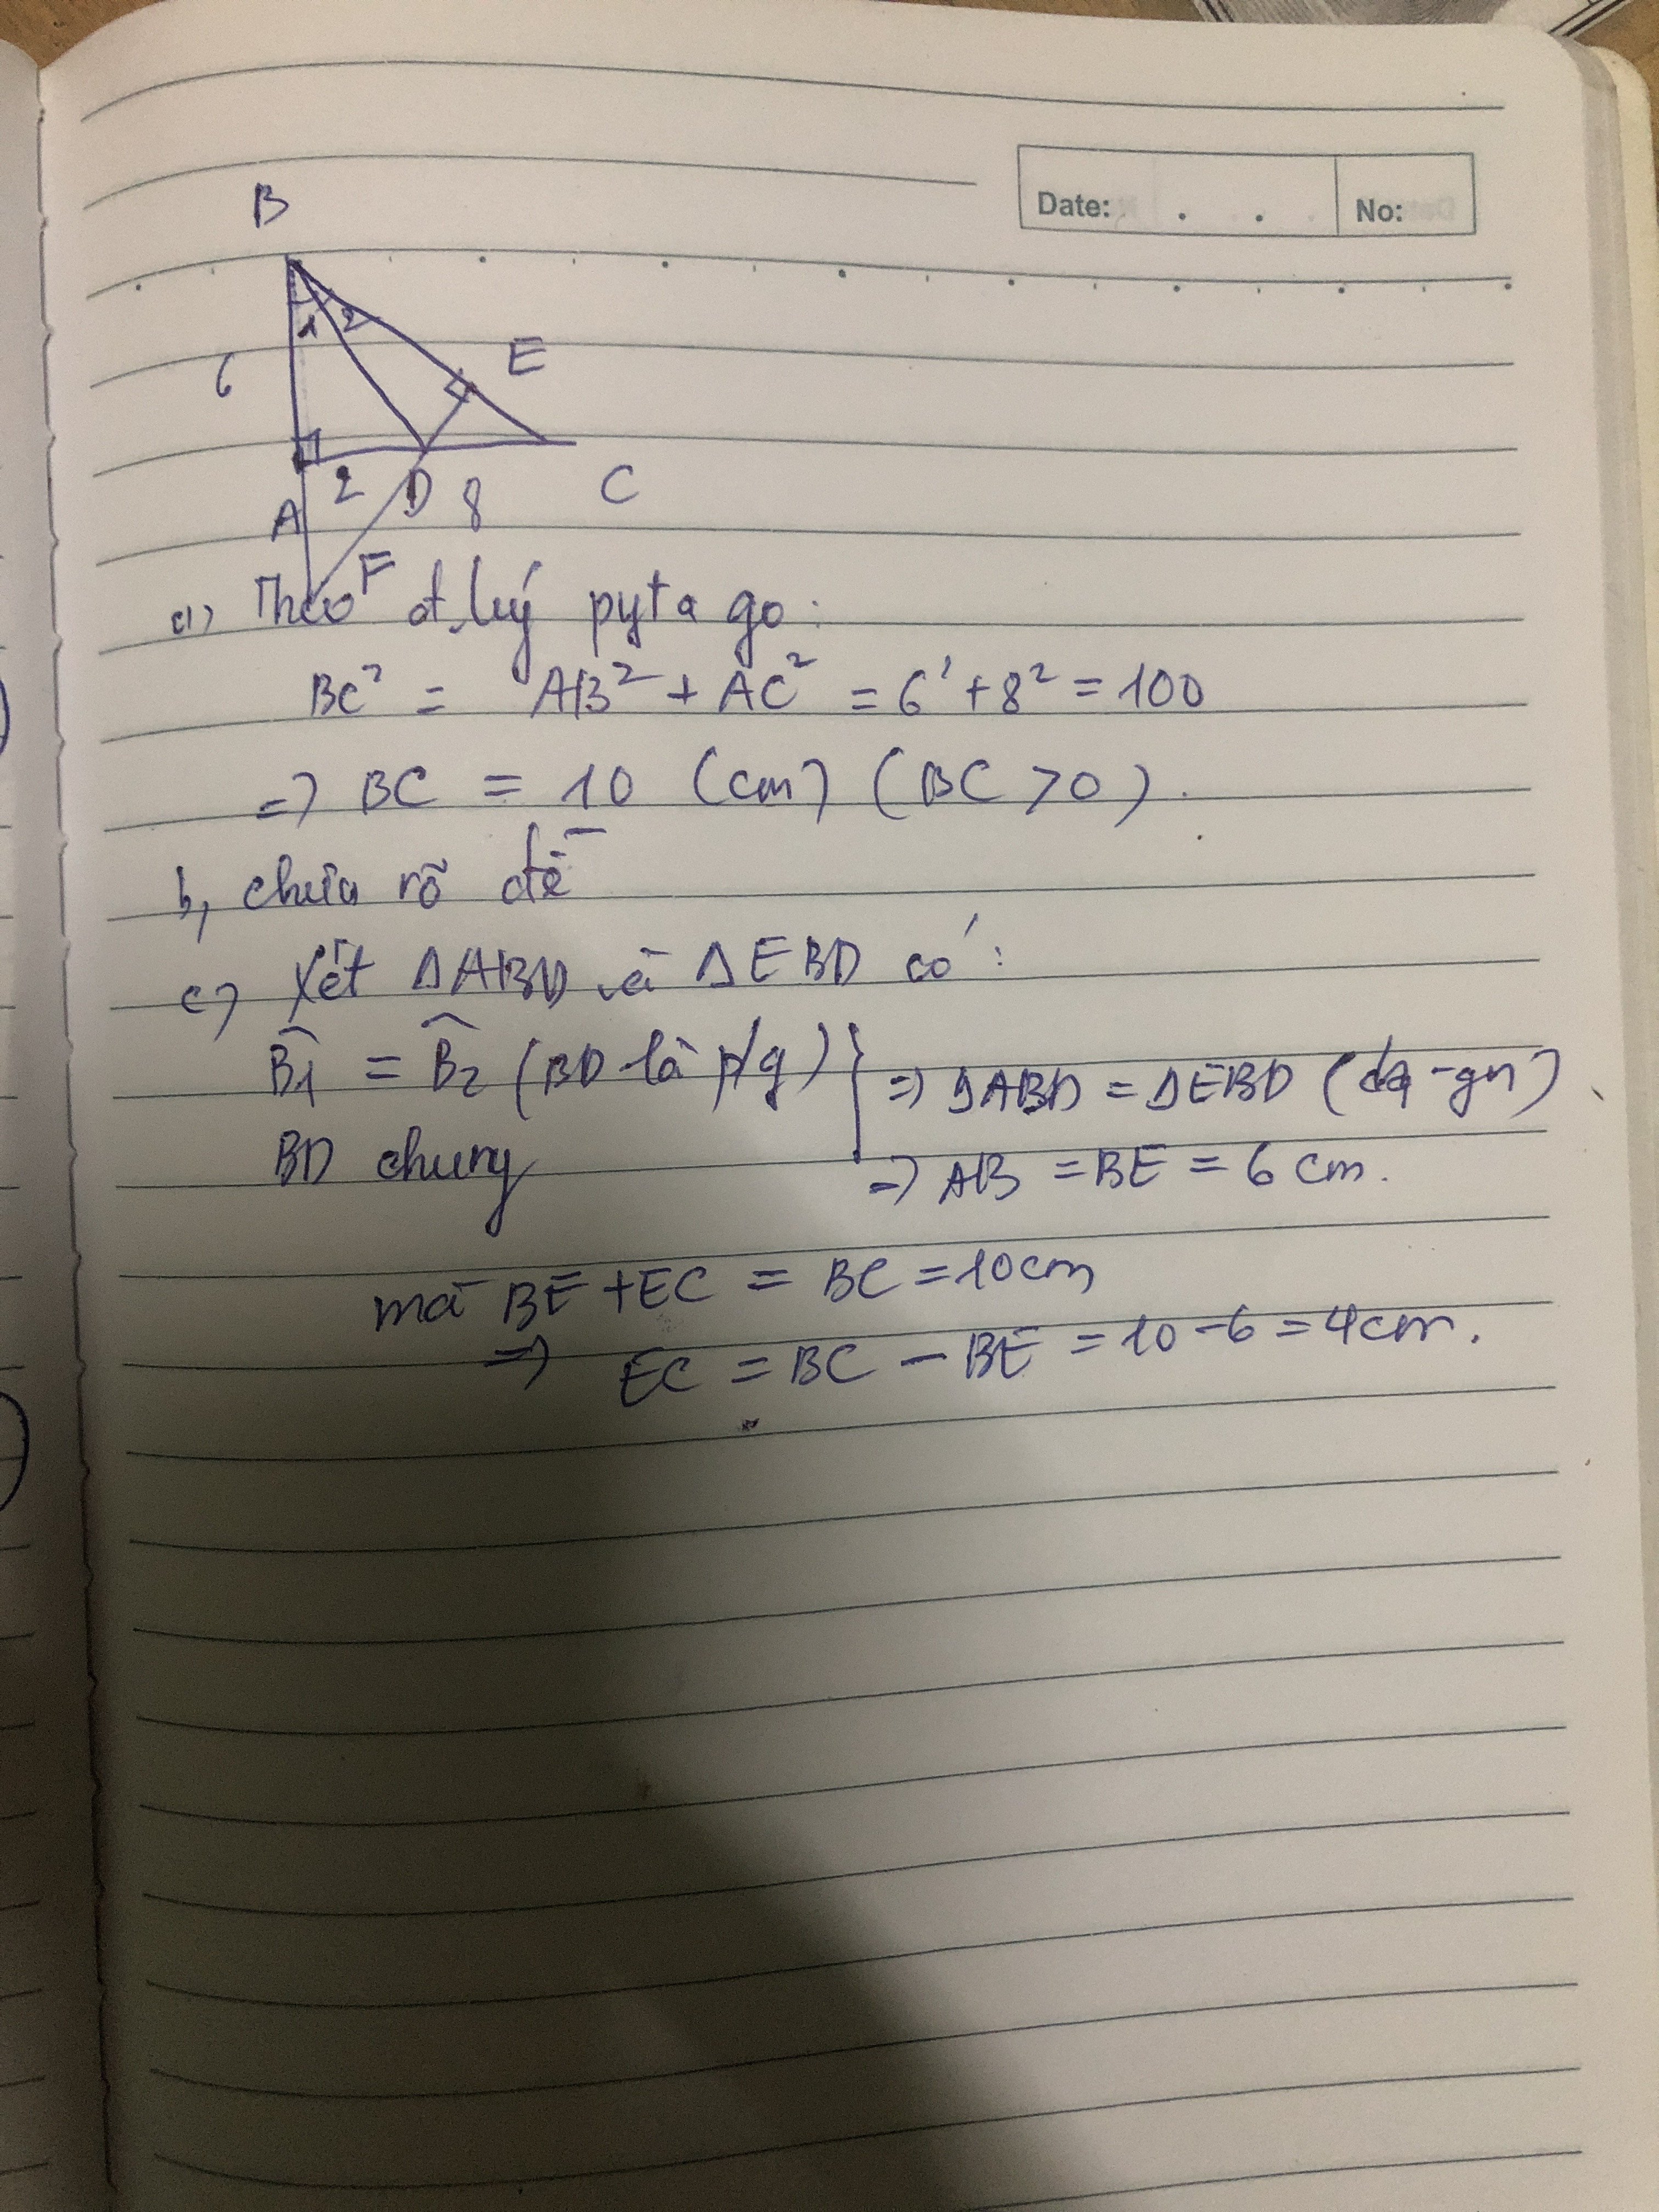 Date: . . No:
B
1 2
6
E
2 D 8 C
A
F
a, Theo đ.lý pytago:
BC² = AB² + AC² = 6² + 8² = 100
=> BC = 10 (cm) (BC > 0).
b, chưa rõ đề
c, Xét ΔABD và ΔEBD có:
B̂1 = B̂2 (BD là p/g)
BD chung
=> ΔABD = ΔEBD (
=> AB = BE = 6 cm.
mà BE + EC = BC = 10cm
=> EC = BC - BE = 10 - 6 = 4cm.